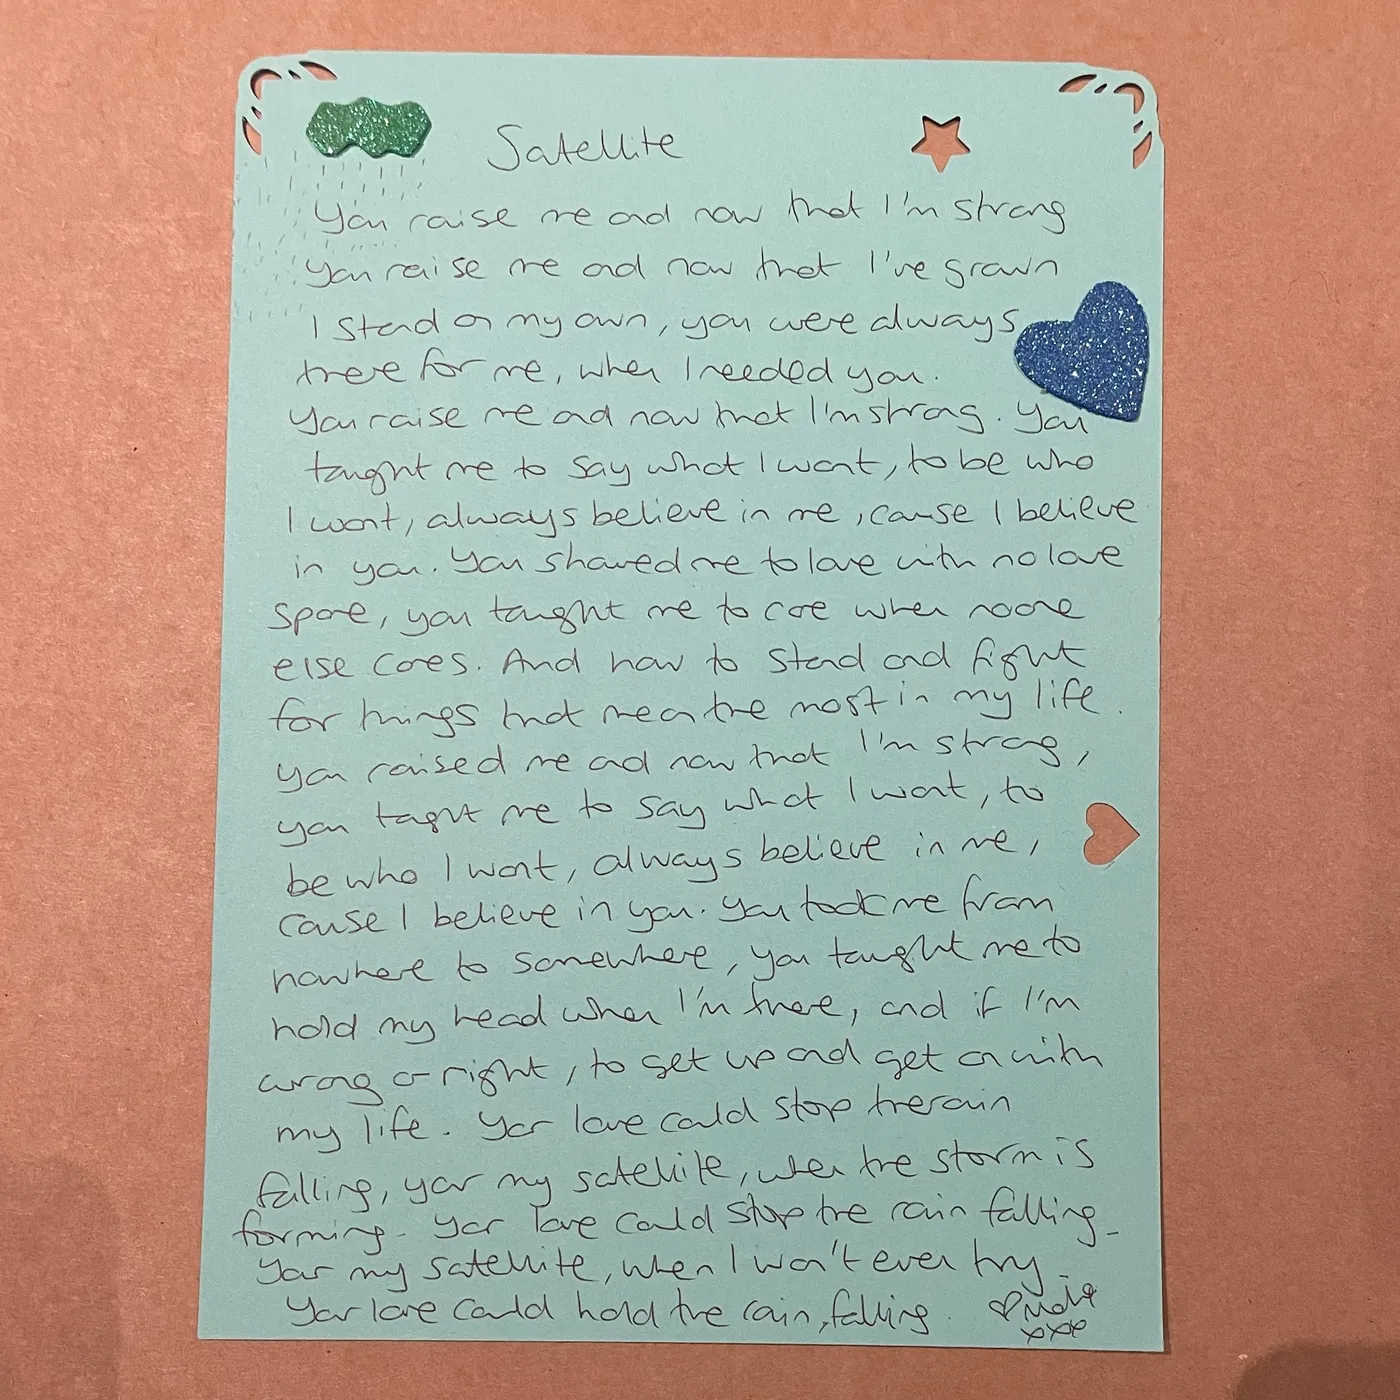 Satellite
You raise me and now that I'm strong
you raise me and now that I've grown
I stand on my own, you were always
there for me, when I needed you.
You raise me and now that I'm strong. You
taught me to say what I want, to be who
I want, always believe in me, cause I believe
in you. You shared me to love with no love
spare, you taught me to care when noone
else cares. And how to stand and fight
for things that mean the most in my life.
you raised me and now that I'm strong,
you taght me to say what I want, to
be who I want, always believe in me,
cause I believe in you. You took me from
nowhere to somewhere, you taught me to
hold my head when I'm there, and if I'm
wrong or right, to get up and get on with
my life. Your love could stop the rain
falling, your my satellite, when the storm is
forming. Your love could stop the rain falling.
Your my satellite, when I won't ever try.
Your love could hold the rain, falling.
xxx